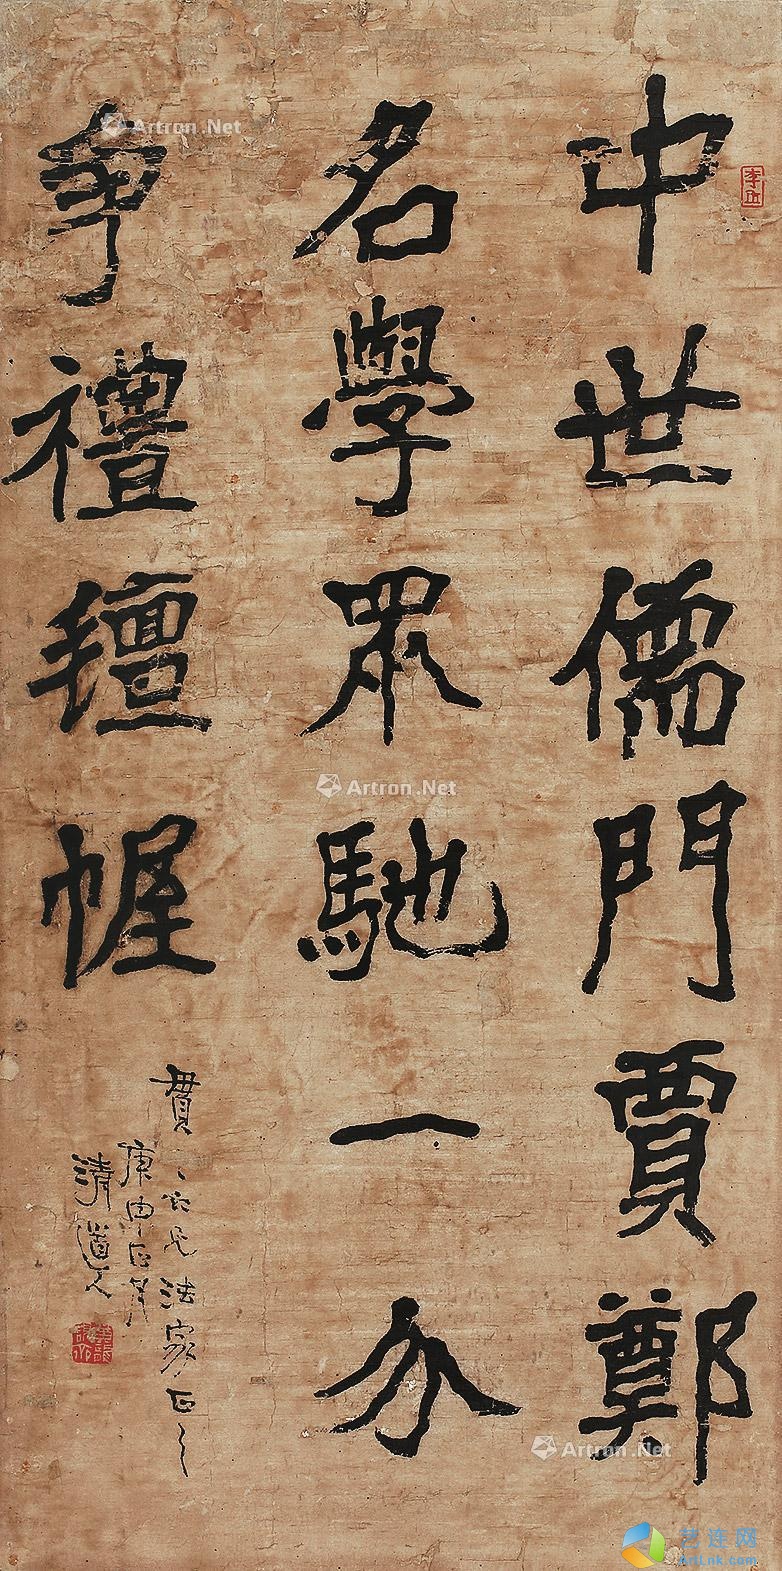 中世儒門賈鄭
名學眾馳一分
爭禮氊幄
貫一仁兄法家正之
庚申正月
清道人
Artron.Net
Artron.Net
Artron.Net
艺连网
artlnk.com